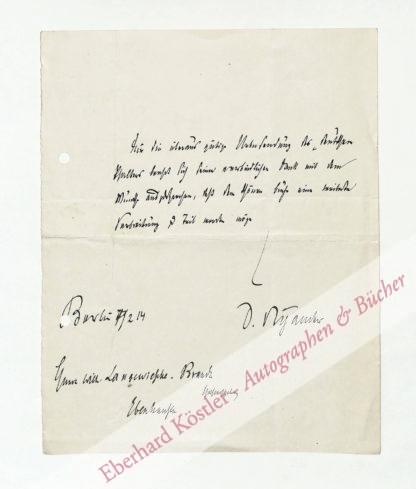 Für die überaus gütige Übersendung des „Deutschen
seinen verbindlichen Dank mit dem
Wunsch auszusprechen, daß dem schönen Buche eine weiteste
Verbreitung zu Teil werden möge
Berlin 2.14
D.
Herrn Langewiesche-Brandt
Ebenhausen
Eberhard Köstler - Autographen & Bücher